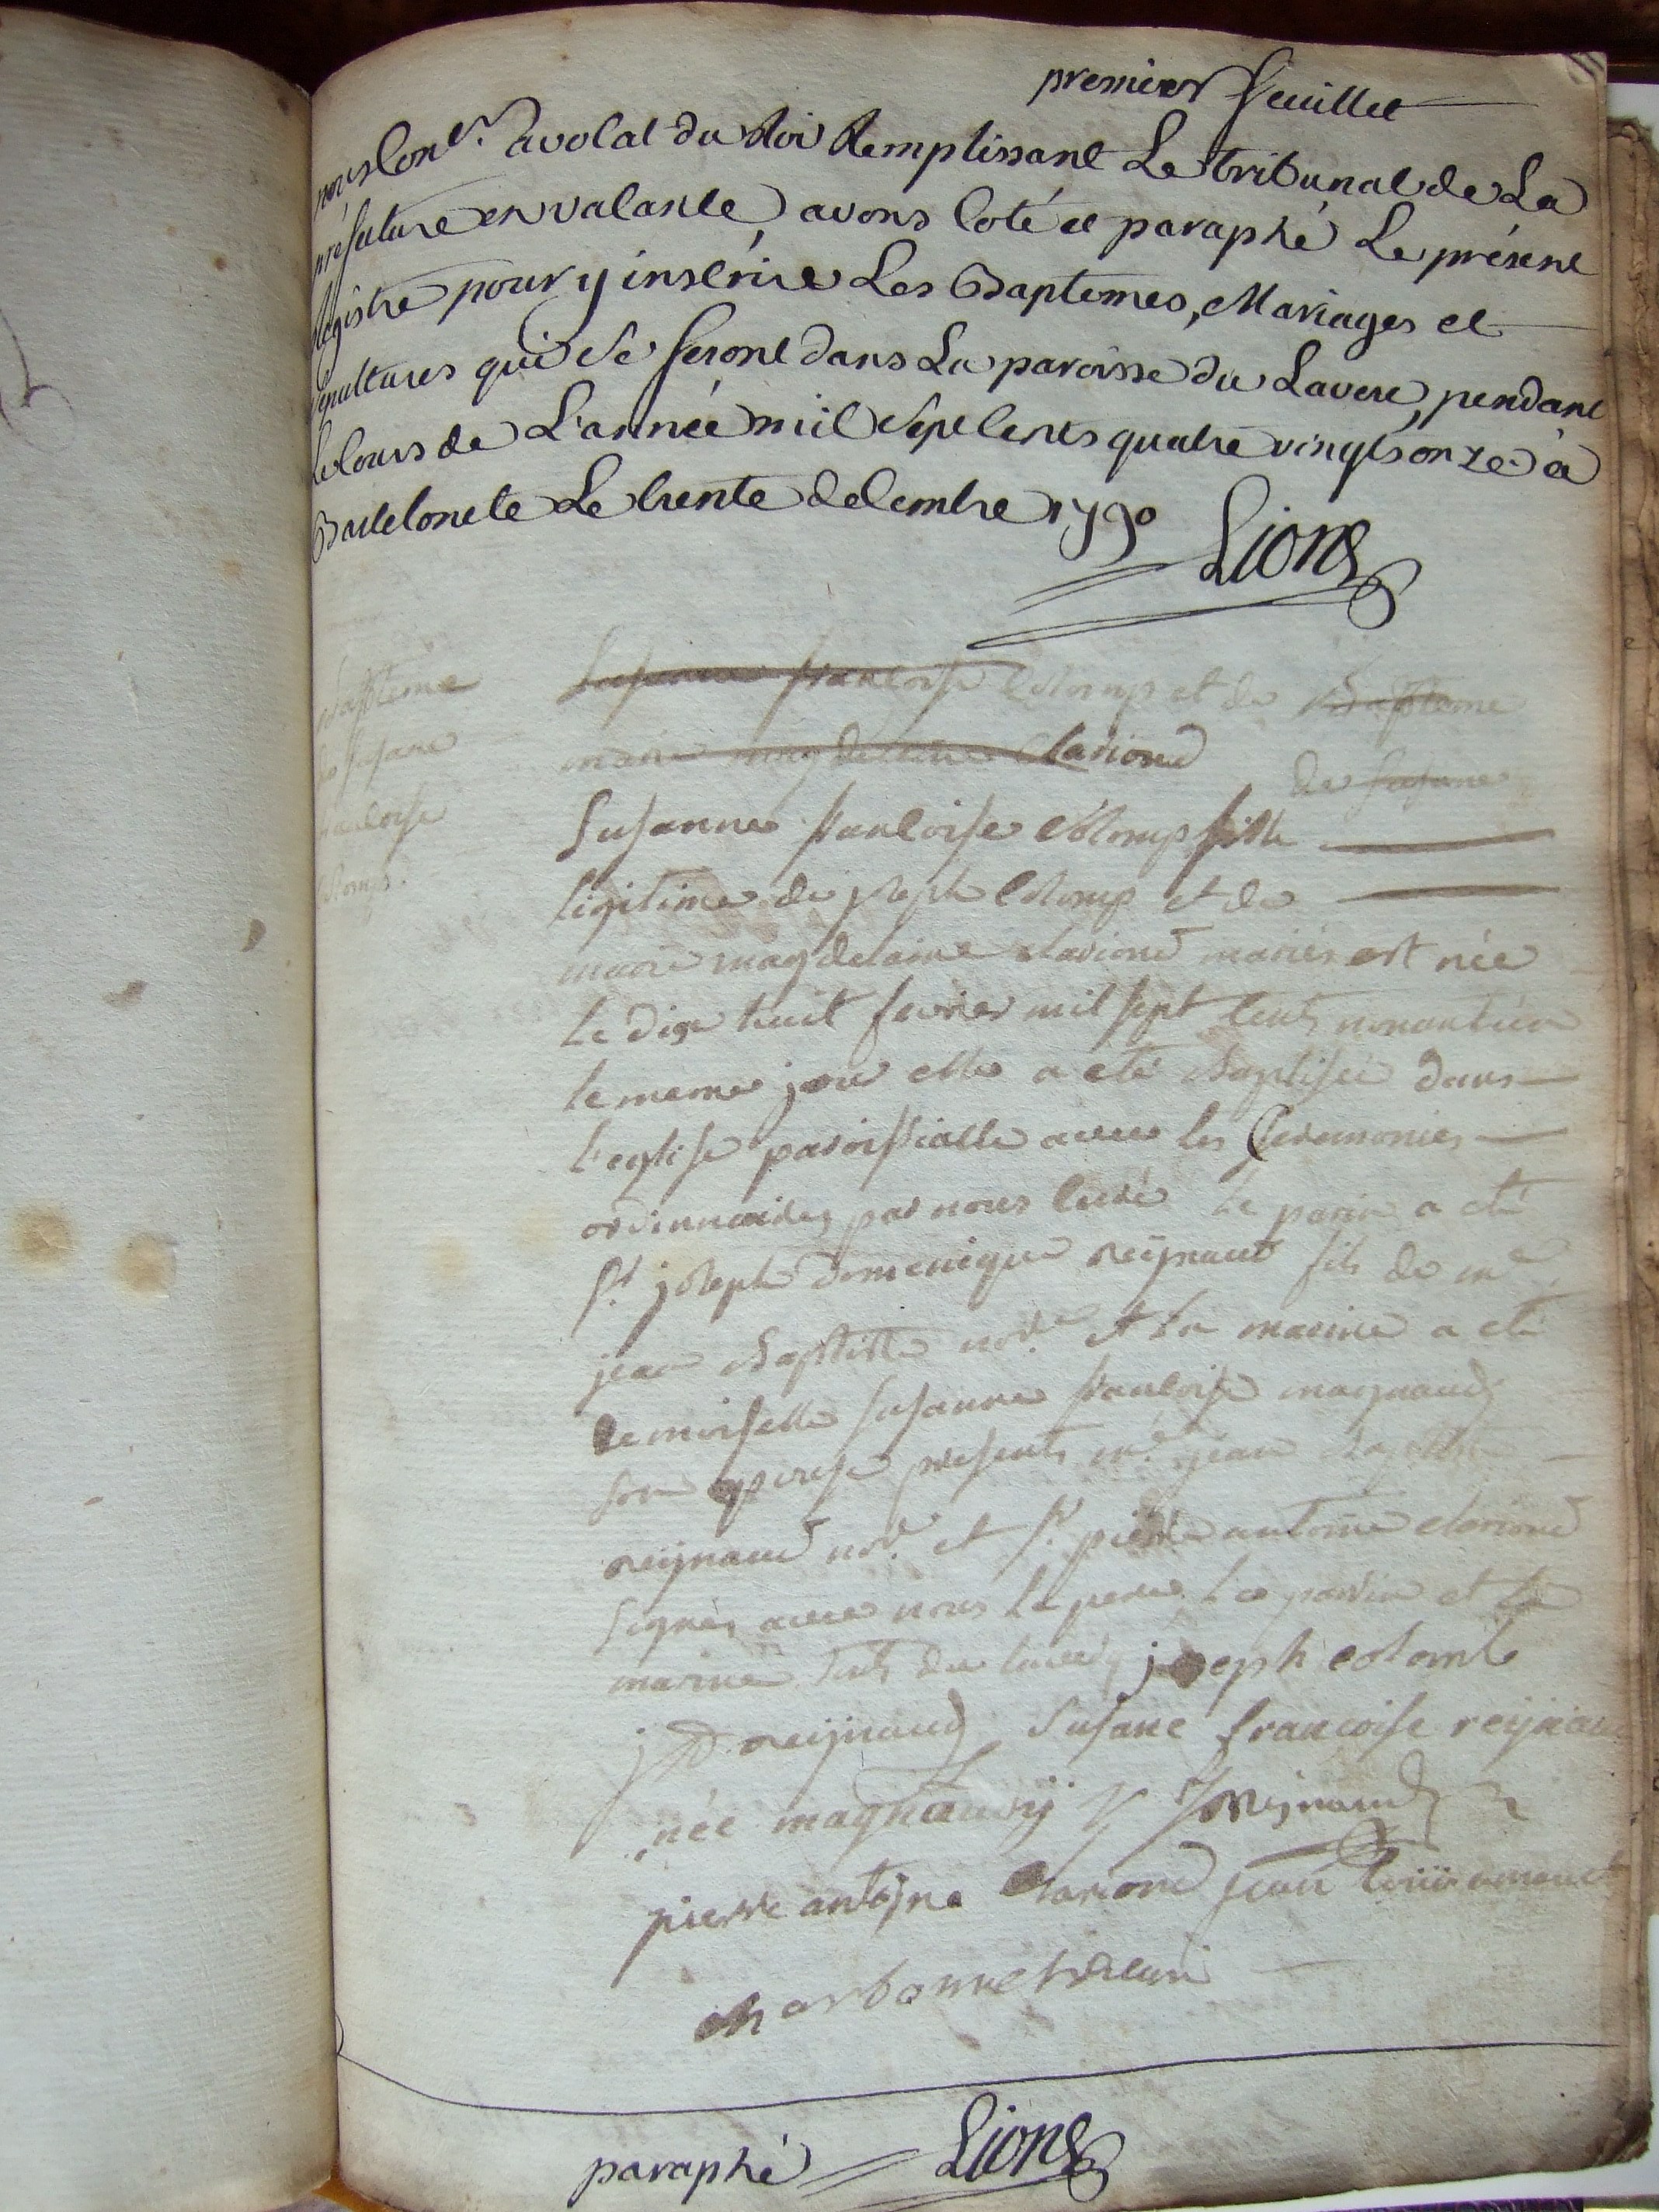 premier feuillet
nous Con.er avocat du Roi Remplissant Le tribunal de La
préfecture en vacance, avons coté et paraphé Le présent
Registre pour y inscrire Les Baptemes, Mariages et
sepultures qui se feront dans La paroisse du Laverc, pendant
le Cours de L'année mil sept cents quatre vingts onze à
Barcelonete Le trente decembre 1790 Lions
Susanne francoise Colomp et de Bapteme
marie magdelaine Clariond
de susane
Bapteme
de susane
francoise
Colomp.
Susanne francoise Colomp fille
légitime de joseph Colomp et de
marie magdelaine clariond mariés est née
le dix huit fevrier mil sept cents nonantun
le meme jour elle a eté baptisée dans
l'eglise paroissialle avec les Ceremonies
ordinnaires par nous curé le parin a eté
sr. joseph domenique reijnaud fils de me.
jean baptiste nore. et la marine a eté
demoiselle susanne francoise magnaudy
son epouse presents me. jean baptiste
reijnaud nore. et sr. pierre antoine clariond
signés avec nous le pere le parrin et la
marine touts du laverq joseph colomb
j D reijnaud Susane francoise reijnaud
née magnaudÿ J reijnaud
pierre antojne clariond jean
charbonnel curé
paraphé Lions